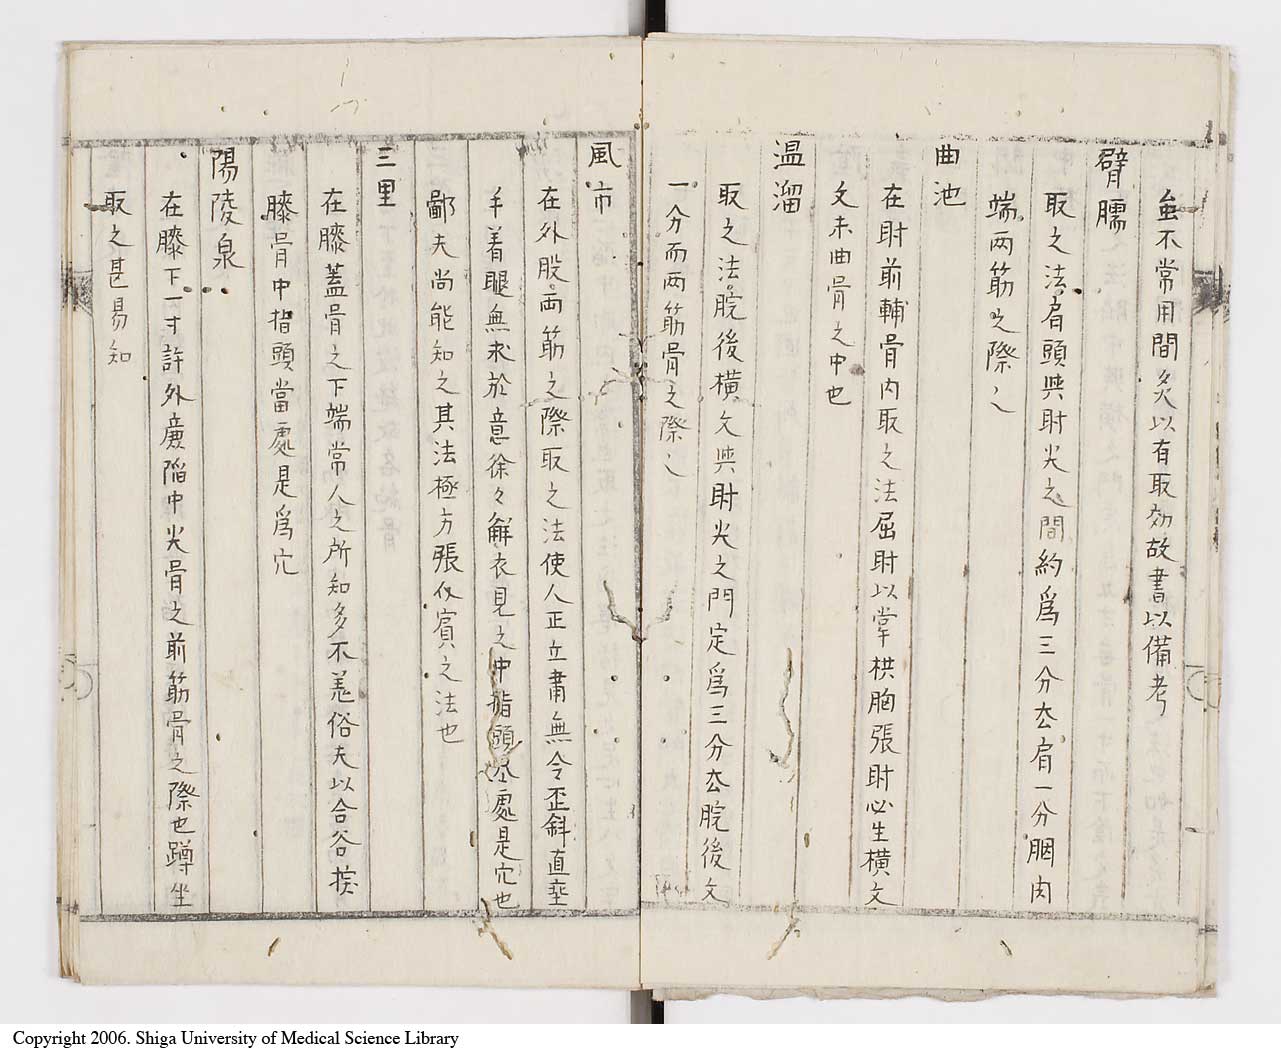 虽不常用間灸以有取効故書以備考
臂臑
取之法肩頭與肘尖之間約爲三分去肩一分胭肉
端两筋之際〻
曲池
在肘前輔骨内取之法屈肘以掌栱胸張肘必生横文
文未曲骨之中也
温溜
取之法腕後横文與肘尖之門定爲三分去腕後文
一分而两筋骨之際〻
風市
在外股両筋之際取之法使人正立肅無令歪斜直垂
手着腿無求於意徐々解衣見之中指頭盡處是穴也
鄙夫尚能知之其法極方張似賓之法也
三里
在膝蓋骨之下端常人之所知多不差俗夫以合谷挨
膝骨中指頭當處是爲穴
陽陵泉
在膝下一寸許外廉陷中尖骨之前筋骨之際也蹲坐
取之甚易知
Copyright 2006. Shiga University of Medical Science Library